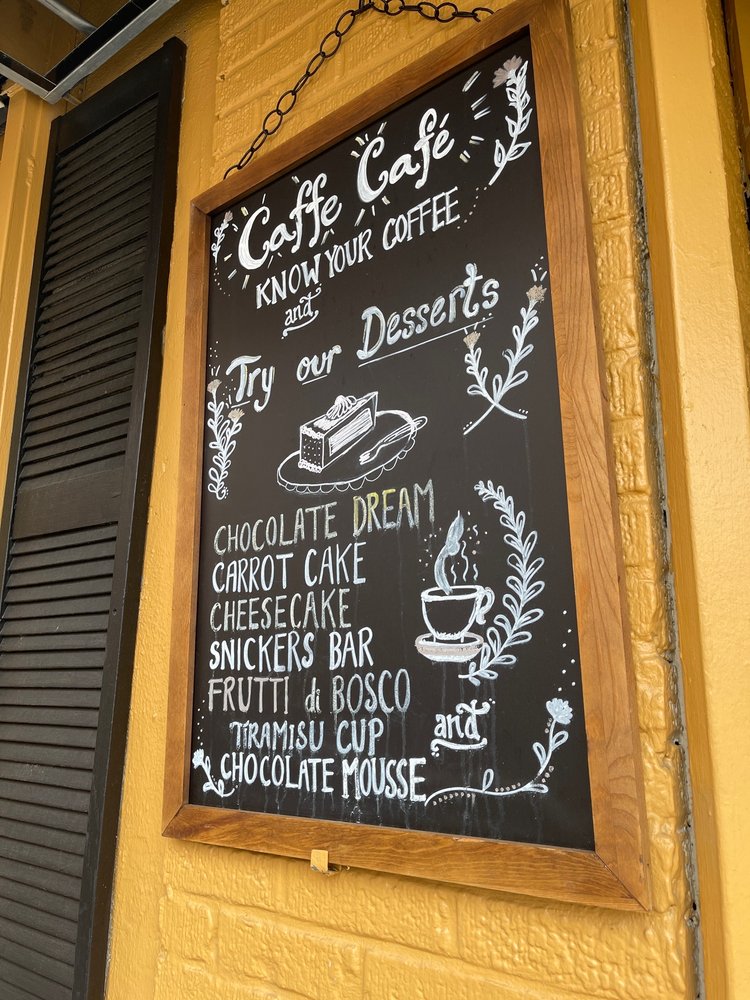 Caffe Café
KNOW YOUR COFFEE
and
Try our Desserts
CHOCOLATE DREAM
CARROT CAKE
CHEESECAKE
SNICKERS BAR
FRUTTI di BOSCO
TIRAMISU CUP and
CHOCOLATE MOUSSE